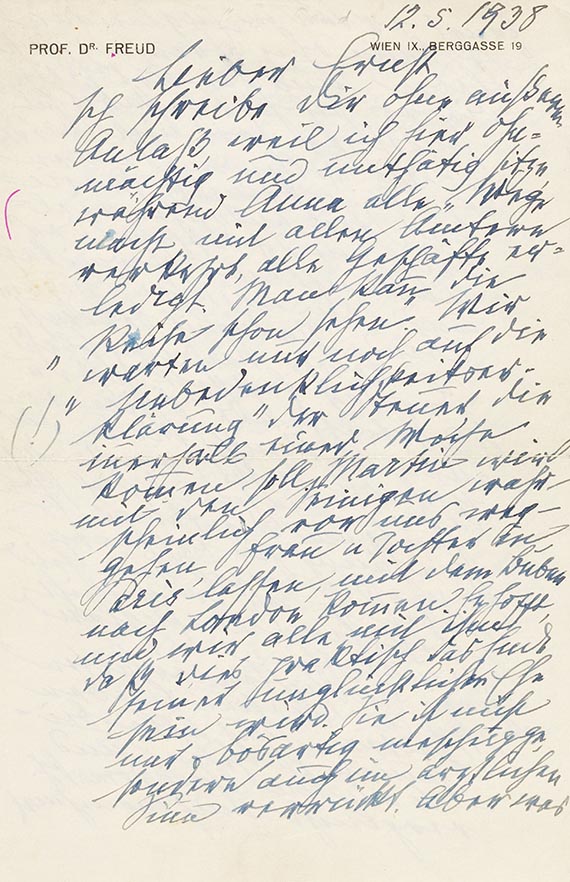 12.5.1938
PROF. DR. FREUD
WIEN IX., BERGGASSE 19
Lieber Ernst
Ich schreibe dir ohne äußeren
Anlaß weil ich hier ohn-
mächtig und unthätig sitze
während Anna alle Wege
macht mit allen Ämtern
verkehrt, alle Geschäfte er-
ledigt. Man kann die
Reise schon sehen. Wir
warten nur noch auf die
„Unbedenklichkeitser-
klärung" der Steuer die
innerhalb einer Woche
kommen soll. Martin wird
mit den Seinigen wahr-
scheinlich vor uns weg-
gehen, Frau u Tochter in
Paris lassen, mit dem Buben
nach London kommen. Er hofft,
und wir alle mit ihm
daß dies praktisch das Ende
seiner unglücklichen Ehe
sein wird. Sie ist nicht
nur bösartig meschugge,
sondern auch im ärztlichen
Sinn verrückt. Aber was
(!)